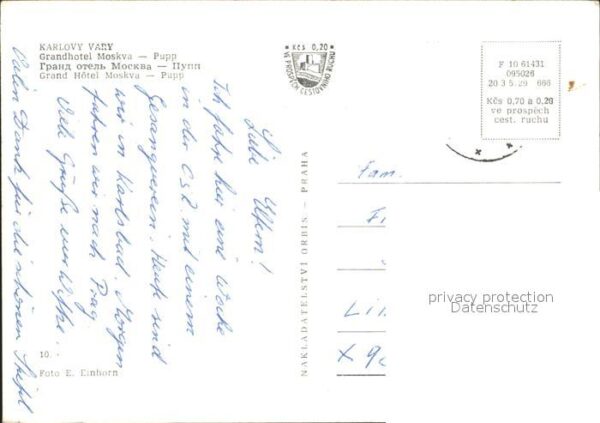 KARLOVY VARY
Grandhotel Moskva — Pupp
Гранд отель Москва — Пупп
Grand Hôtel Moskva — Pupp
Kčs 0,20
VE PROSPĚCH CESTOVNÍHO RUCHU
F 10 61431
095026
20 3 5.29 666
Kčs 0,70 a 0,20
ve prospěch
cest. ruchu
Liebe Eltern!
Ich fahre hier eine Woche
in der CSR mit einem
Gesangverein. Heute sind
wir in Karlsbad. Morgen
fahren wir nach Prag
Viele Grüße euer
Vielen Dank für die schönen
NAKLADATELSTVÍ ORBIS — PRAHA
Fam.
X
10.
Foto E. Einhorn
privacy protection
Datenschutz